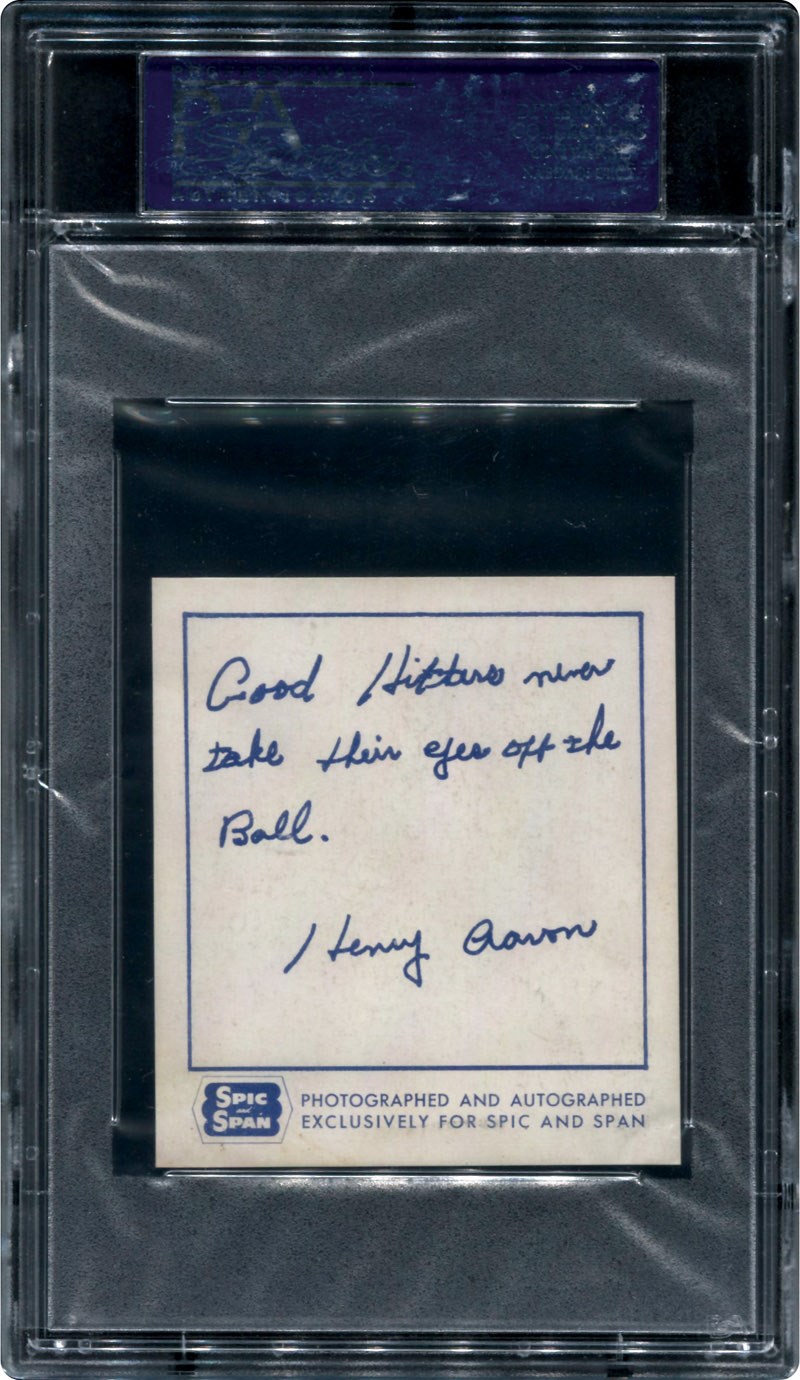 Good Hitters never
take their eyes off the
Ball.
Henry Aaron
SPIC
and
SPAN
PHOTOGRAPHED AND AUTOGRAPHED
EXCLUSIVELY FOR SPIC AND SPAN